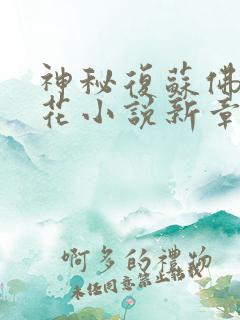 神秘復蘇佛
花小說新章
啊多的禮物
未经同意禁止转载